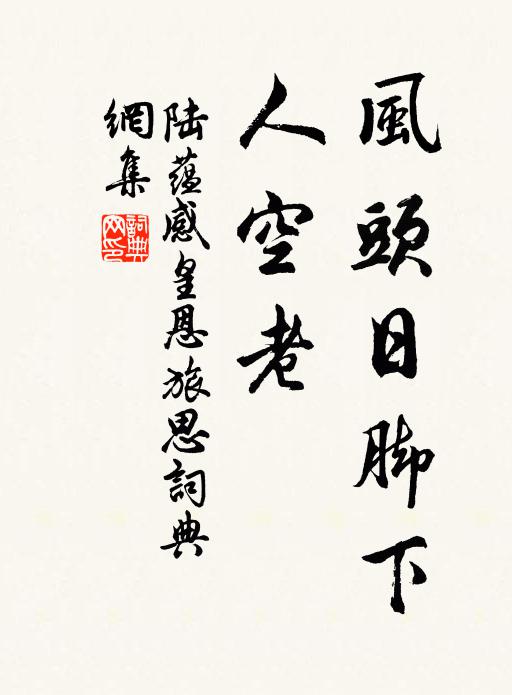 風頭日脚下
人空老
陆蕴感皇恩旅思詞典
網集
詞典網印